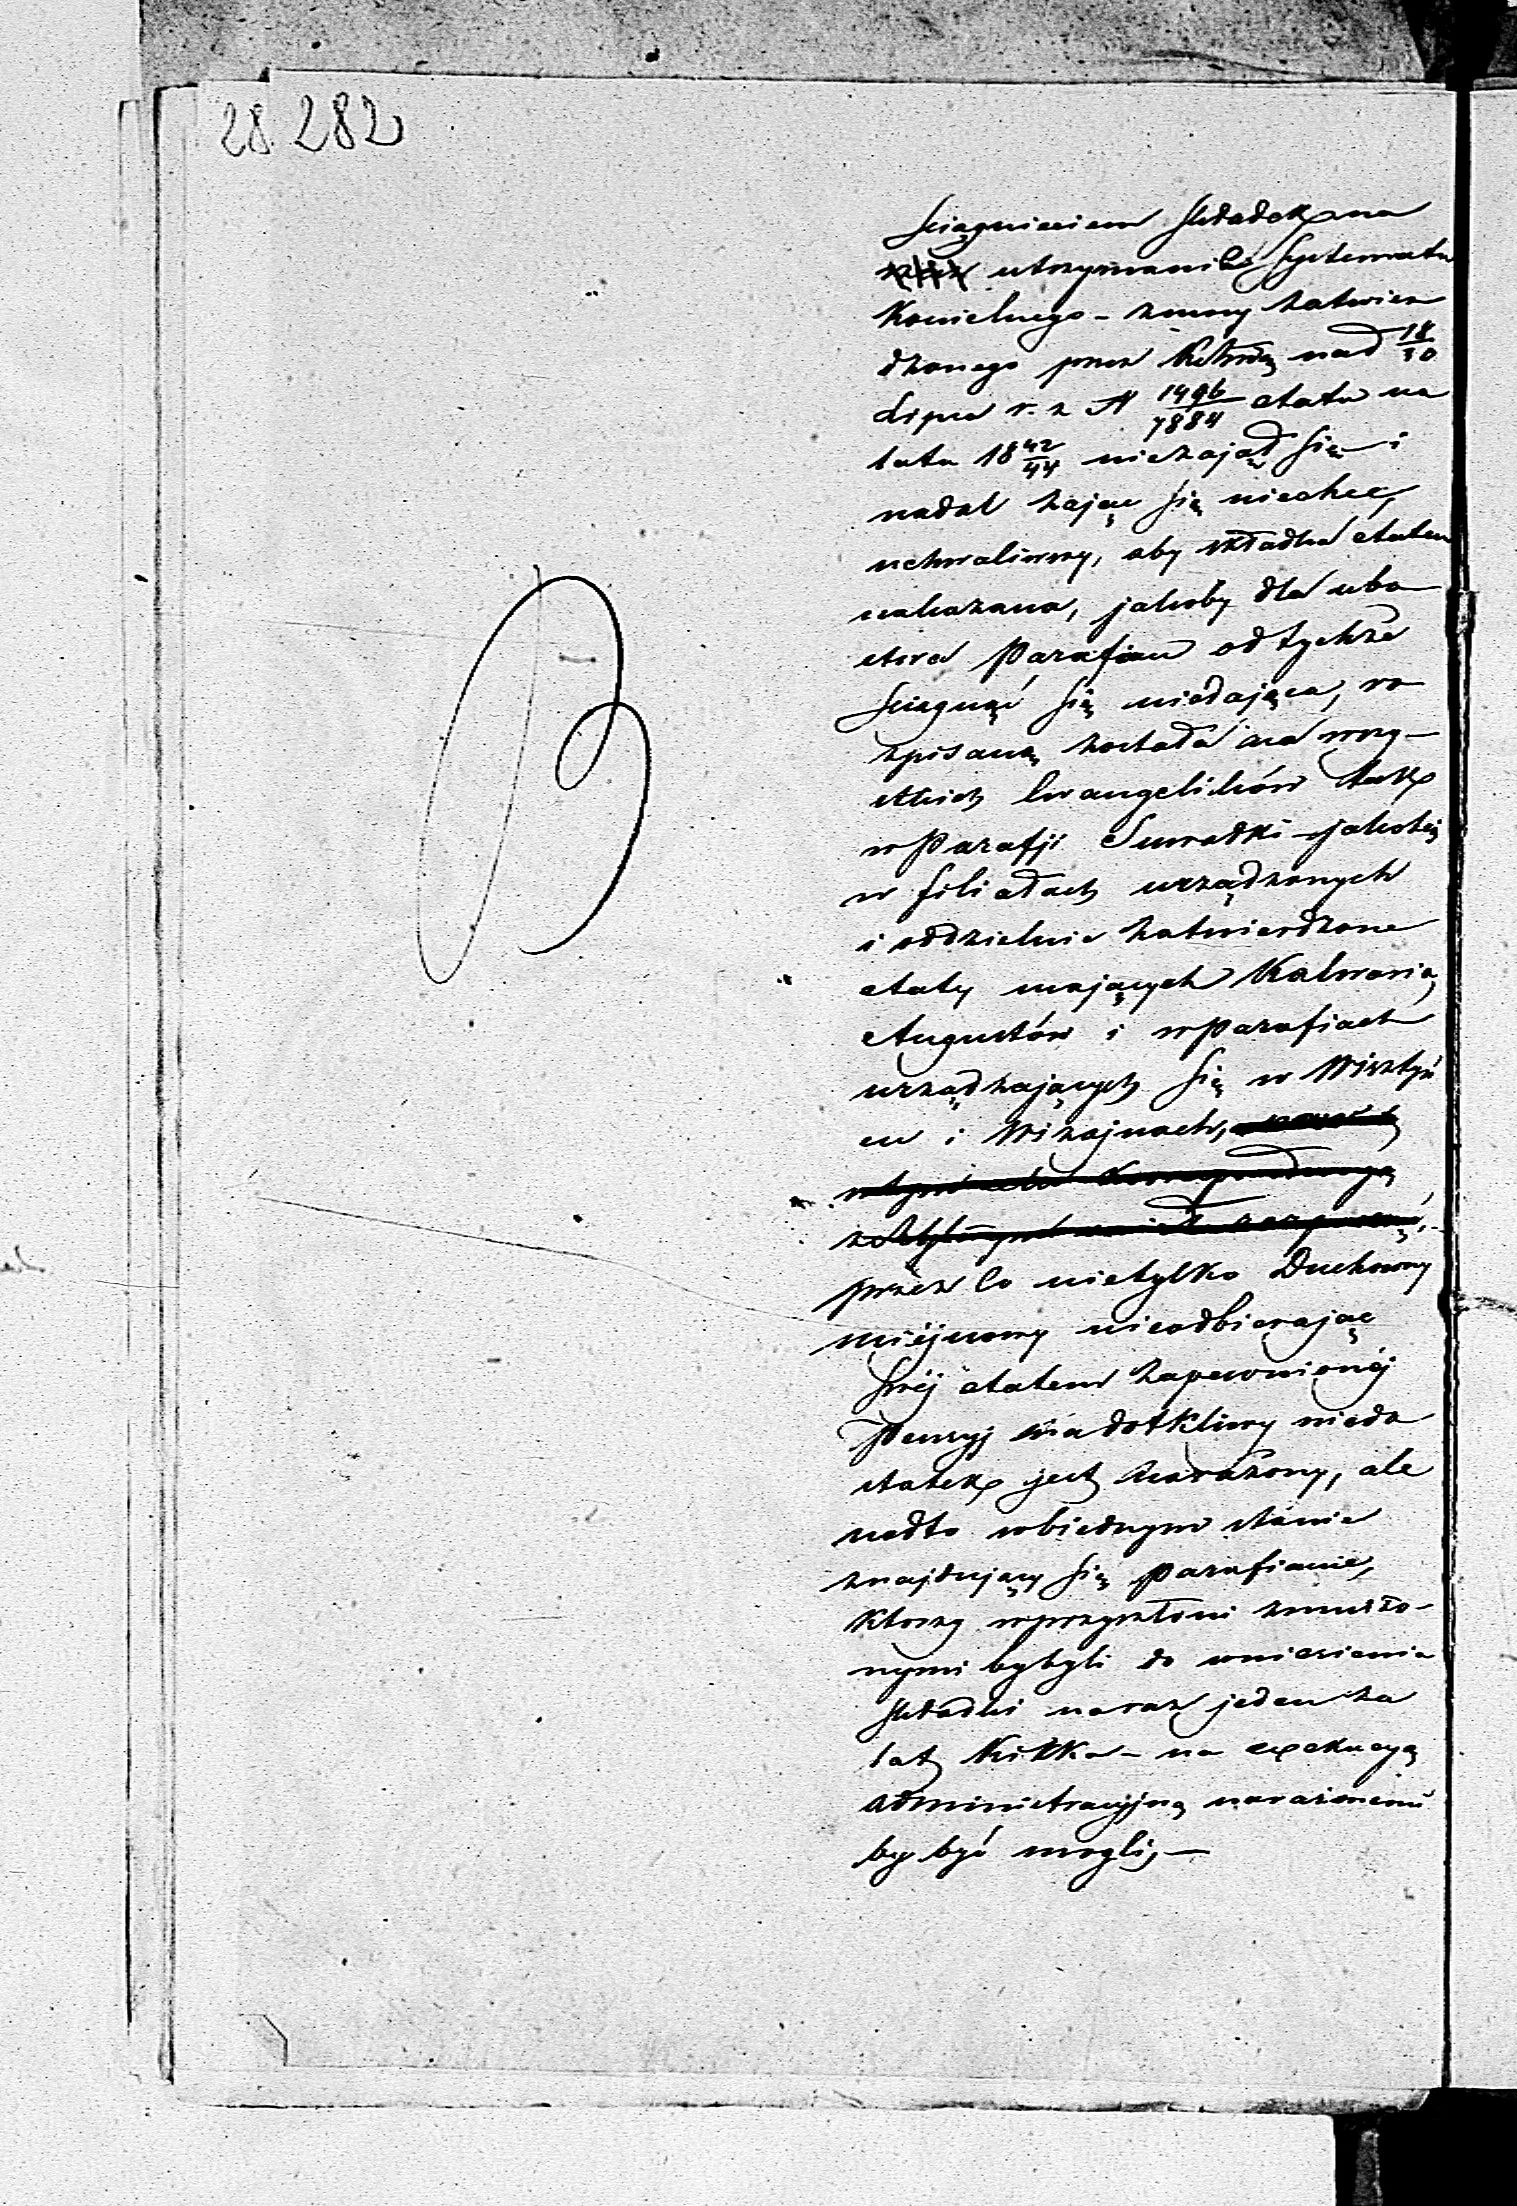 28 282
sciągnieniem składek na
utrzymanie Systematu
Koscielnego – z mocy zatwier
dzonego przez nad 18/30
Lipca r. z. N 1496/7884 etatu na
lata 18 42/44 niezajął się i
nadal zając się niechce,
uchwalismy, aby składka etatem
wskazana, jakoby dla ubo
stwa Parafian od tychże
sciągnąć się niedająca, ro
zpisaną została na wszy–
stkich Ewangelików tak
w Parafji Suwałki jakoteż
w filiałach urządzonych
i oddzielnie zatwierdzone
etaty mających Kalwaria,
Augustów i w Parafiach
urządzających się w Wisztyń
cu i Wiżajnach,
przez co nietylko Duchowny
miéjscowy nieodbierając
swéj etatem zapewnionéj
Pensyj na dotkliwy niedo
statek jest narażony, ale
nadto w biednym stanie
znajdujący się parafianie,
ktorzy w przyszłości zmuszo–
nymi byliby do wniesienia
składki naraz jeden za
lat kilka – na exekucyą
administracyjną narażonemi
by być mogli, —